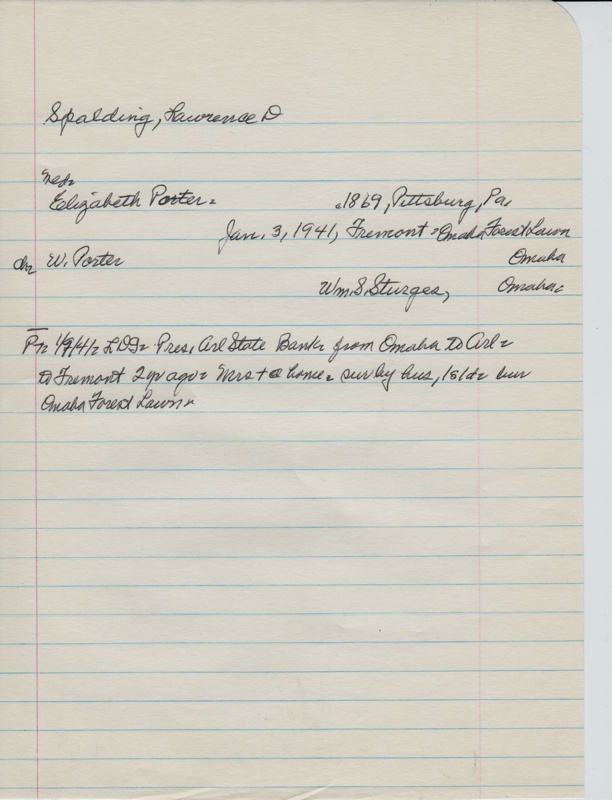 Spalding, Lawrence D
Mrs
Elizabeth Porter 1869, Pittsburg, Pa,
Jan. 3, 1941, Fremont Omaha Forest Lawn
W. Porter Omaha
Wm. S. Sturges, Omaha
1/9/41 Pres, Arl State Bank from Omaha to Arl
to Fremont 2 yr ago Mrs home sur by hus, 1 s 1 d bur
Omaha Forest Lawn